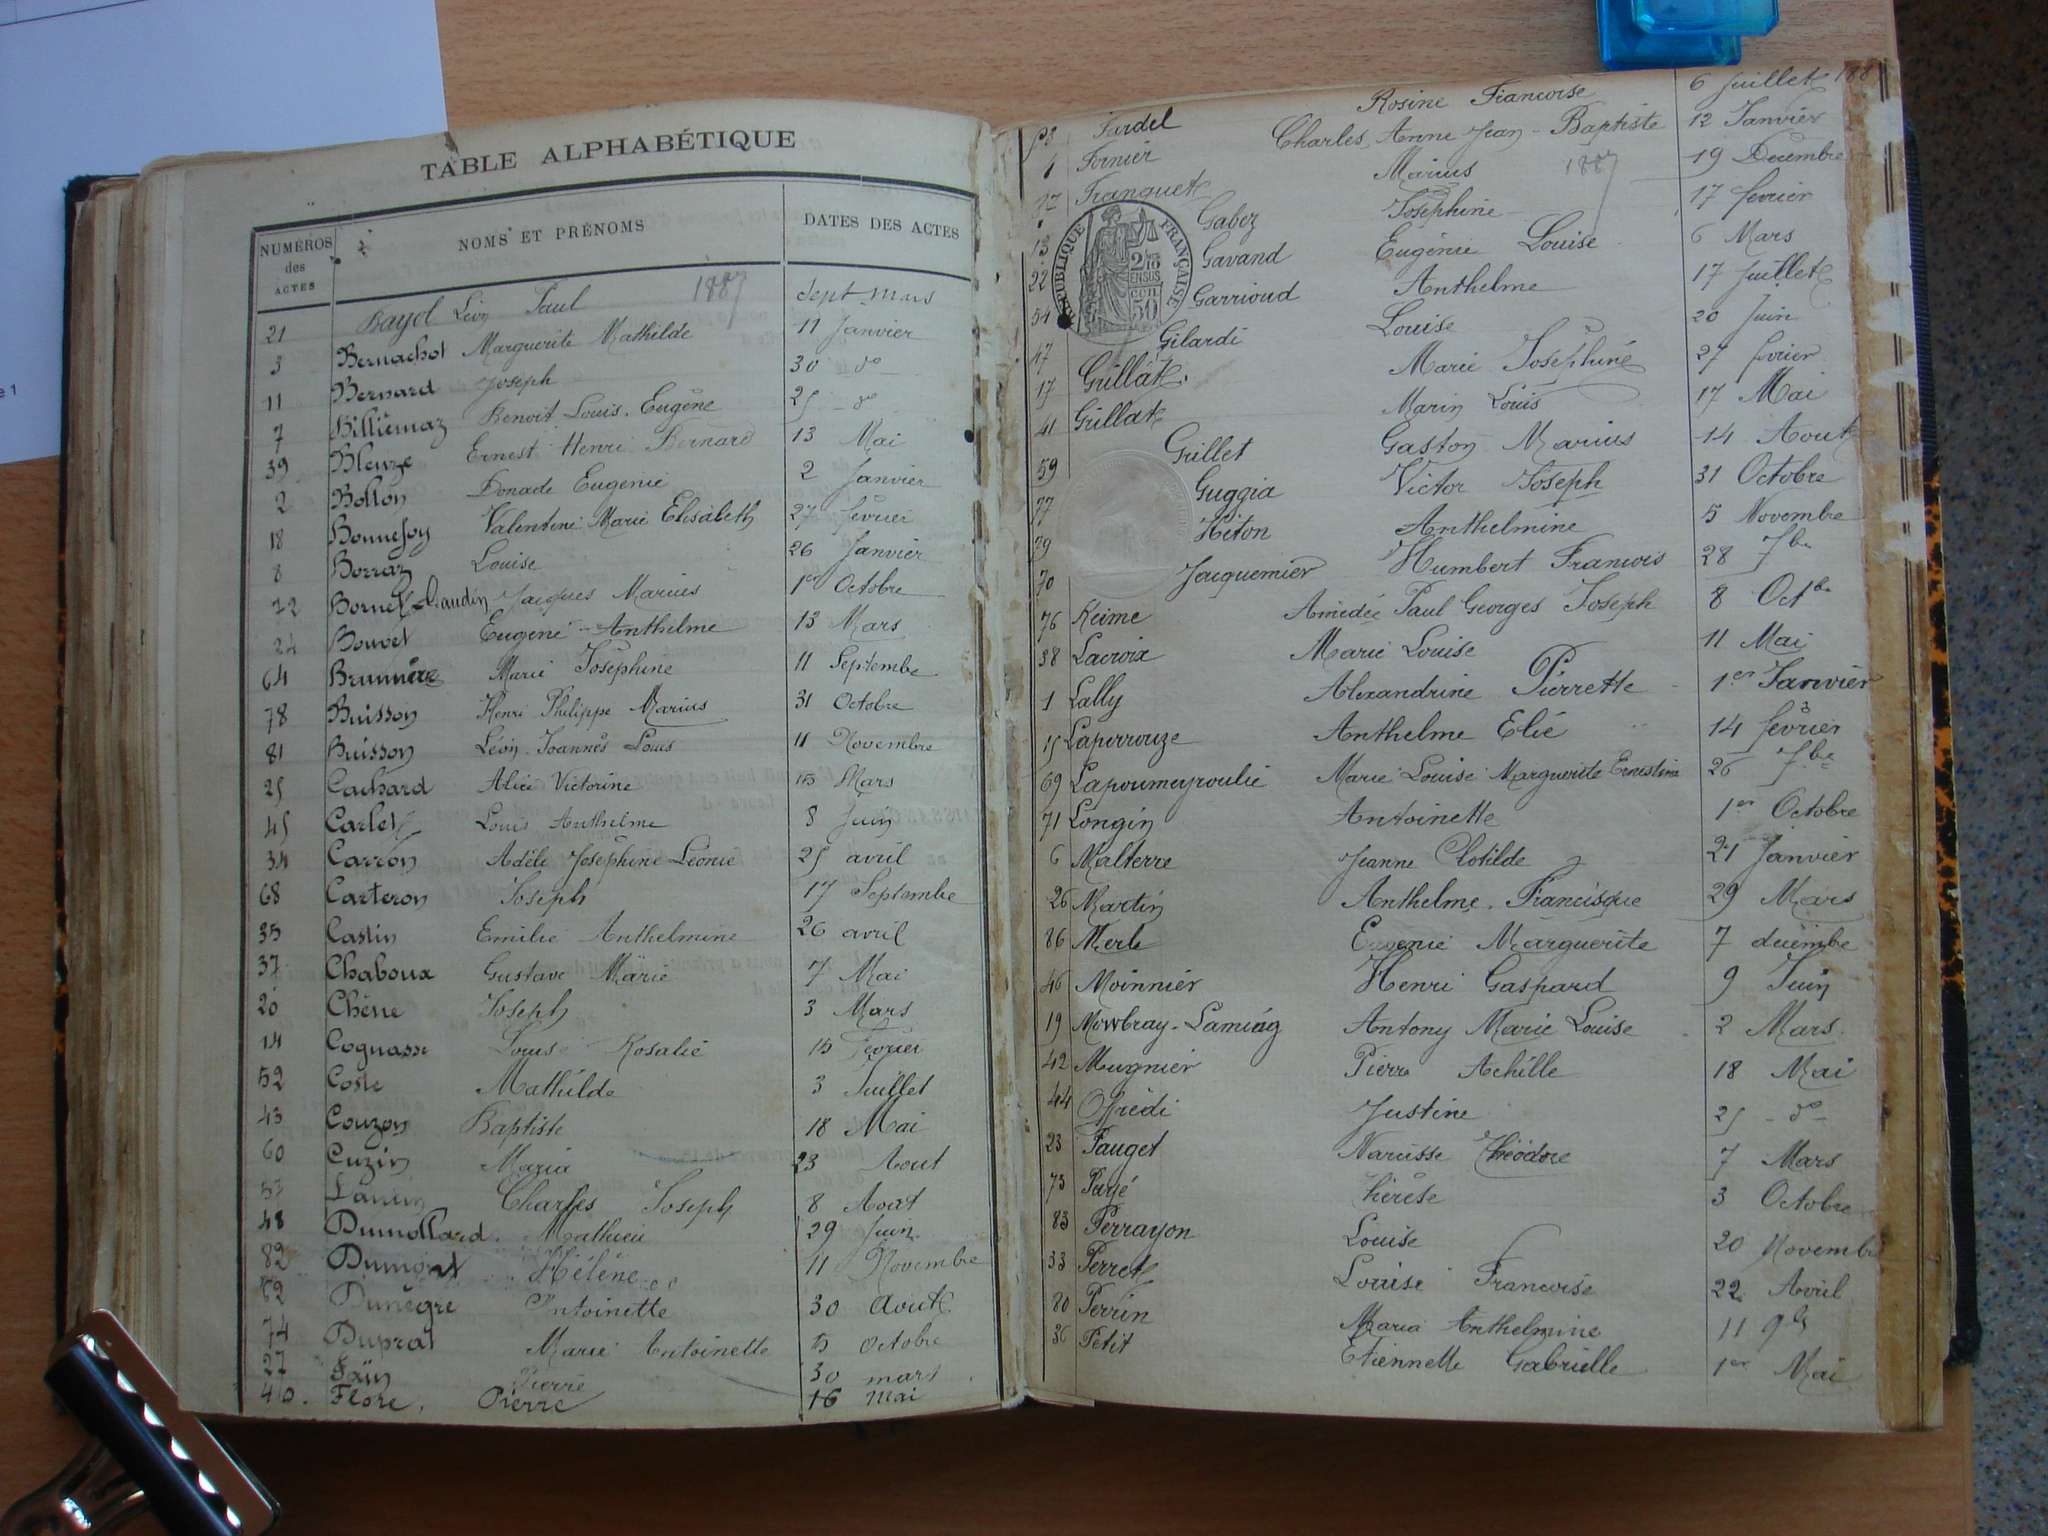 TABLE ALPHABÉTIQUE
NUMÉROS des ACTES NOMS ET PRÉNOMS DATES DES ACTES
21 Bayol Léon Paul 1887 Sept Mars
3 Bernachot Marguerite Mathilde 11 Janvier
11 Bernard Joseph 30 do
7 Billiémaz Benoit Louis Eugène 25 do
39 Bleuze Ernest Henri Bernard 13 Mai
2 Bollon Eugenie 2 Janvier
18 Bonnefoy Valentine Marie Elisabeth 27 fevrier
8 Borraz Louise 26 Janvier
72 Bornet Jacques Marius 1er Octobre
24 Bouvet Eugene Anthelme 13 Mars
64 Marie Joséphine 11 Septembe
78 Buisson Henri Philippe Marius 31 Octobre
81 Buisson Léon Joannès Louis 11 Novembre
25 Cachard Alice Victorine 15 Mars
45 Carlet Louis Anthelme 8 Juin
34 Carron Adèle Joséphine Léonie 25 avril
68 Carteron Joseph 17 Septembre
35 Castin Emilie Anthelmine 26 avril
37 Chaboux Gustave Marie 7 Mai
20 Chêne Joseph 3 Mars
14 Cognasse Louise Rosalie 15 Fevrier
52 Coste Mathilde 3 Juillet
43 Couzon Baptiste 18 Mai
60 Cuzin Maria 23 Aout
53 Charles Joseph 8 Aout
48 Dumollard Mathieu 29 Juin
82 Dumont Hélène 11 Novembre
62 Dunègre Antoinette 30 Aout
74 Duprat Marie Antoinette 5 Octobre
27 Faÿn Pierre 30 mars
40. Flore, Pierre 16 mai
Fardel Rosine Francoise 6 Juillet 188
1 Fornier Charles Anne Jean-Baptiste 12 Janvier
Franquet Marius 1887 19 Decembre
13 Gabez Joséphine 17 fevrier
22 Gavand Eugénie Louise 6 Mars
54 Garrioud Anthelme 17 Juillet
RÉPUBLIQUE FRANÇAISE 2/10 EN SUS 50
47 Gilardi Louise 20 Juin
17 Grillat Marie Joséphine 27 fevrier
41 Grillat Marin Louis 17 Mai
59 Grillet Gaston Marius 14 Aout
77 Guggia Victor Joseph 31 Octobre
79 Hiton Anthelmine 5 Novembre
70 Jacquemier Humbert Francois 28 7bre
76 Keime Amédée Paul Georges Joseph 8 Octbre
38 Lacroix Marie Louise 11 Mai
1 Lally Alexandrine Pierrette 1er Janvier
15 Laperrouze Anthelme Elie 14 fevrier
69 Lapoumeyroulie Marie Louise Marguerite Ernestine 26 7bre
71 Longin Antoinette 1er Octobre
6 Malterre Jeanne Clotilde 21 Janvier
26 Martin Anthelme Francisque 29 Mars
86 Merle Eugenie Marguerite 7 decembe
46 Moinnier Henri Gaspard 9 Juin
19 Mowbray-Laming Antony Marie Louise 2 Mars
42 Mugnier Pierre Achille 18 Mai
44 Offredi Justine 25 do
23 Pauget Narcisse Théodore 7 Mars
73 Payé Thérèse 3 Octobre
83 Perrayon Louise 20 Novembre
33 Perret Louise Francoise 22 Avril
80 Perrin Maria Anthelmine 11 9bre
36 Petit Etiennette Gabrielle 1er Mai